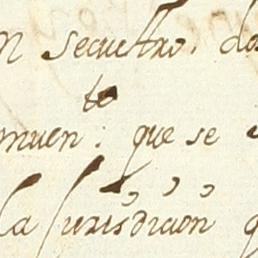 n secuestro, do
te
muen: que se
la Jurisdicion q